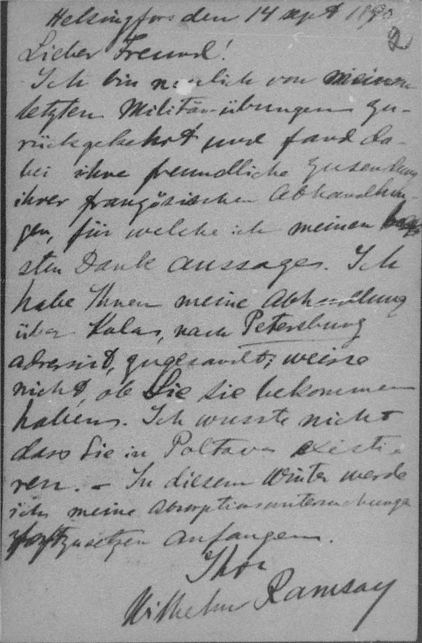 Helsingfors den 14 sept 1890
2
Lieber Freund!
Ich bin neulich von meinen
letzten Militärübungen zu-
rückgekehrt und fand da-
bei ihre freundliche Zusendung
ihrer französischen Abhandlun-
gen, für welche ich meinen bes-
sten Dank aussages. Ich
habe Ihnen meine Abhandlung
über Kolas, nach Petersburg
adressirt, zugesandt; weisse
nicht, ob Sie sie bekommen
habens. Ich wusste nicht
dass Sie in Poltava existi-
ren. – In diesem Winter werde
ich meine Absorptionsuntersuchungen
fortzusetzen anfangen.
Ihr
Wilhelm Ramsay